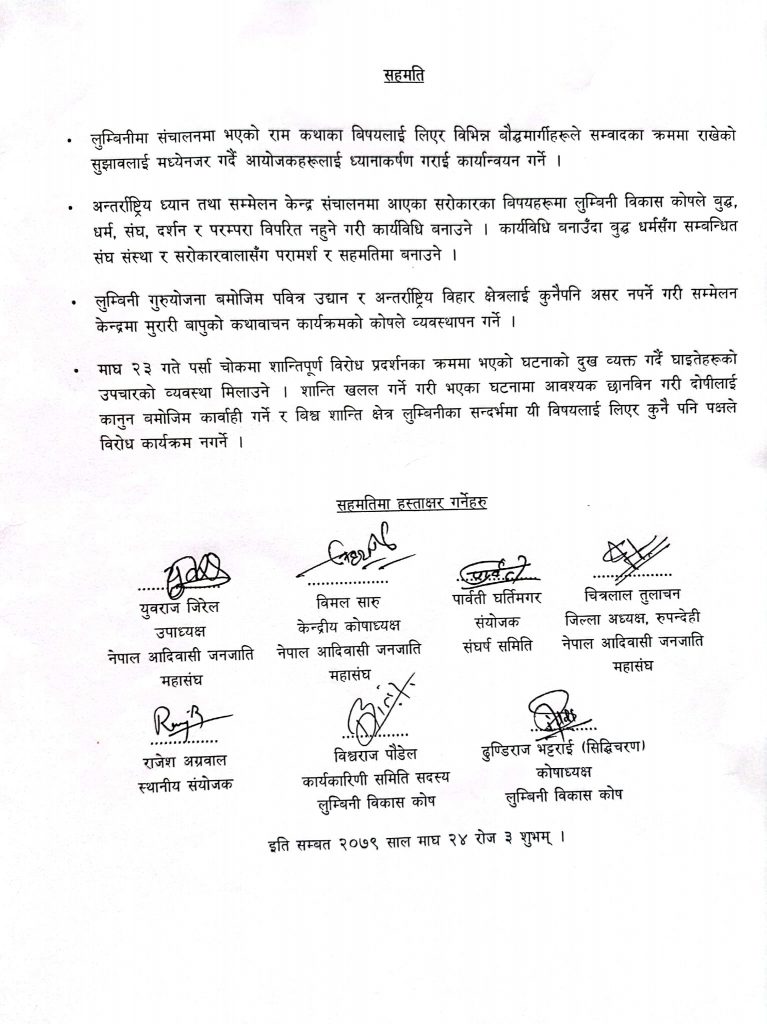 सहमति
• लुम्बिनीमा संचालनमा भएको राम कथाका विषयलाई लिएर विभिन्न बौद्धमार्गीहरूले सम्वादका क्रममा राखेको
सुझावलाई मध्येनजर गर्दै आयोजकहरूलाई ध्यानाकर्षण गराई कार्यान्वयन गर्ने ।
• अन्तर्राष्ट्रिय ध्यान तथा सम्मेलन केन्द्र संचालनमा आएका सरोकारका विषयहरूमा लुम्बिनी विकास कोषले बुद्ध,
धर्म, संघ, दर्शन र परम्परा विपरित नहुने गरी कार्यविधि बनाउने । कार्यविधि बनाउँदा बुद्ध धर्मसँग सम्वन्धित
संघ संस्था र सरोकारवालासँग परामर्श र सहमतिमा बनाउने ।
• लुम्बिनी गुरुयोजना बमोजिम पवित्र उद्यान र अन्तर्राष्ट्रिय विहार क्षेत्रलाई कुनैपनि असर नपर्ने गरी सम्मेलन
केन्द्रमा मुरारी बापुको कथावाचन कार्यक्रमको कोषले व्यवस्थापन गर्ने ।
• माघ २३ गते पर्सा चोकमा शान्तिपूर्ण विरोध प्रदर्शनका क्रममा भएको घटनाको दुख व्यक्त गर्दै घाइतेहरूको
उपचारको व्यवस्था मिलाउने । शान्ति खलल गर्ने गरी भएका घटनामा आवश्यक छानविन गरी दोषीलाई
कानुन बमोजिम कार्वाही गर्ने र विश्व शान्ति क्षेत्र लुम्बिनीका सन्दर्भमा यी विषयलाई लिएर कुनै पनि पक्षले
विरोध कार्यक्रम नगर्ने ।
सहमतिमा हस्ताक्षर गर्नेहरु
युवराज जिरेल
उपाध्यक्ष
नेपाल आदिवासी जनजाति
महासंघ
विमल सारु
केन्द्रीय कोषाध्यक्ष
नेपाल आदिवासी जनजाति
महासंघ
पार्वती घर्तिमगर
संयोजक
संघर्ष समिति
चित्रलाल तुलाचन
जिल्ला अध्यक्ष, रुपन्देही
नेपाल आदिवासी जनजाति
महासंघ
राजेश अग्रवाल
स्थानीय संयोजक
विश्वराज पौडेल
कार्यकारिणी समिति सदस्य
लुम्बिनी विकास कोष
ढुण्डिराज भट्टराई (सिद्धिचरण)
कोषाध्यक्ष
लुम्बिनी विकास कोष
इति सम्बत २०७९ साल माघ २४ रोज ३ शुभम् ।